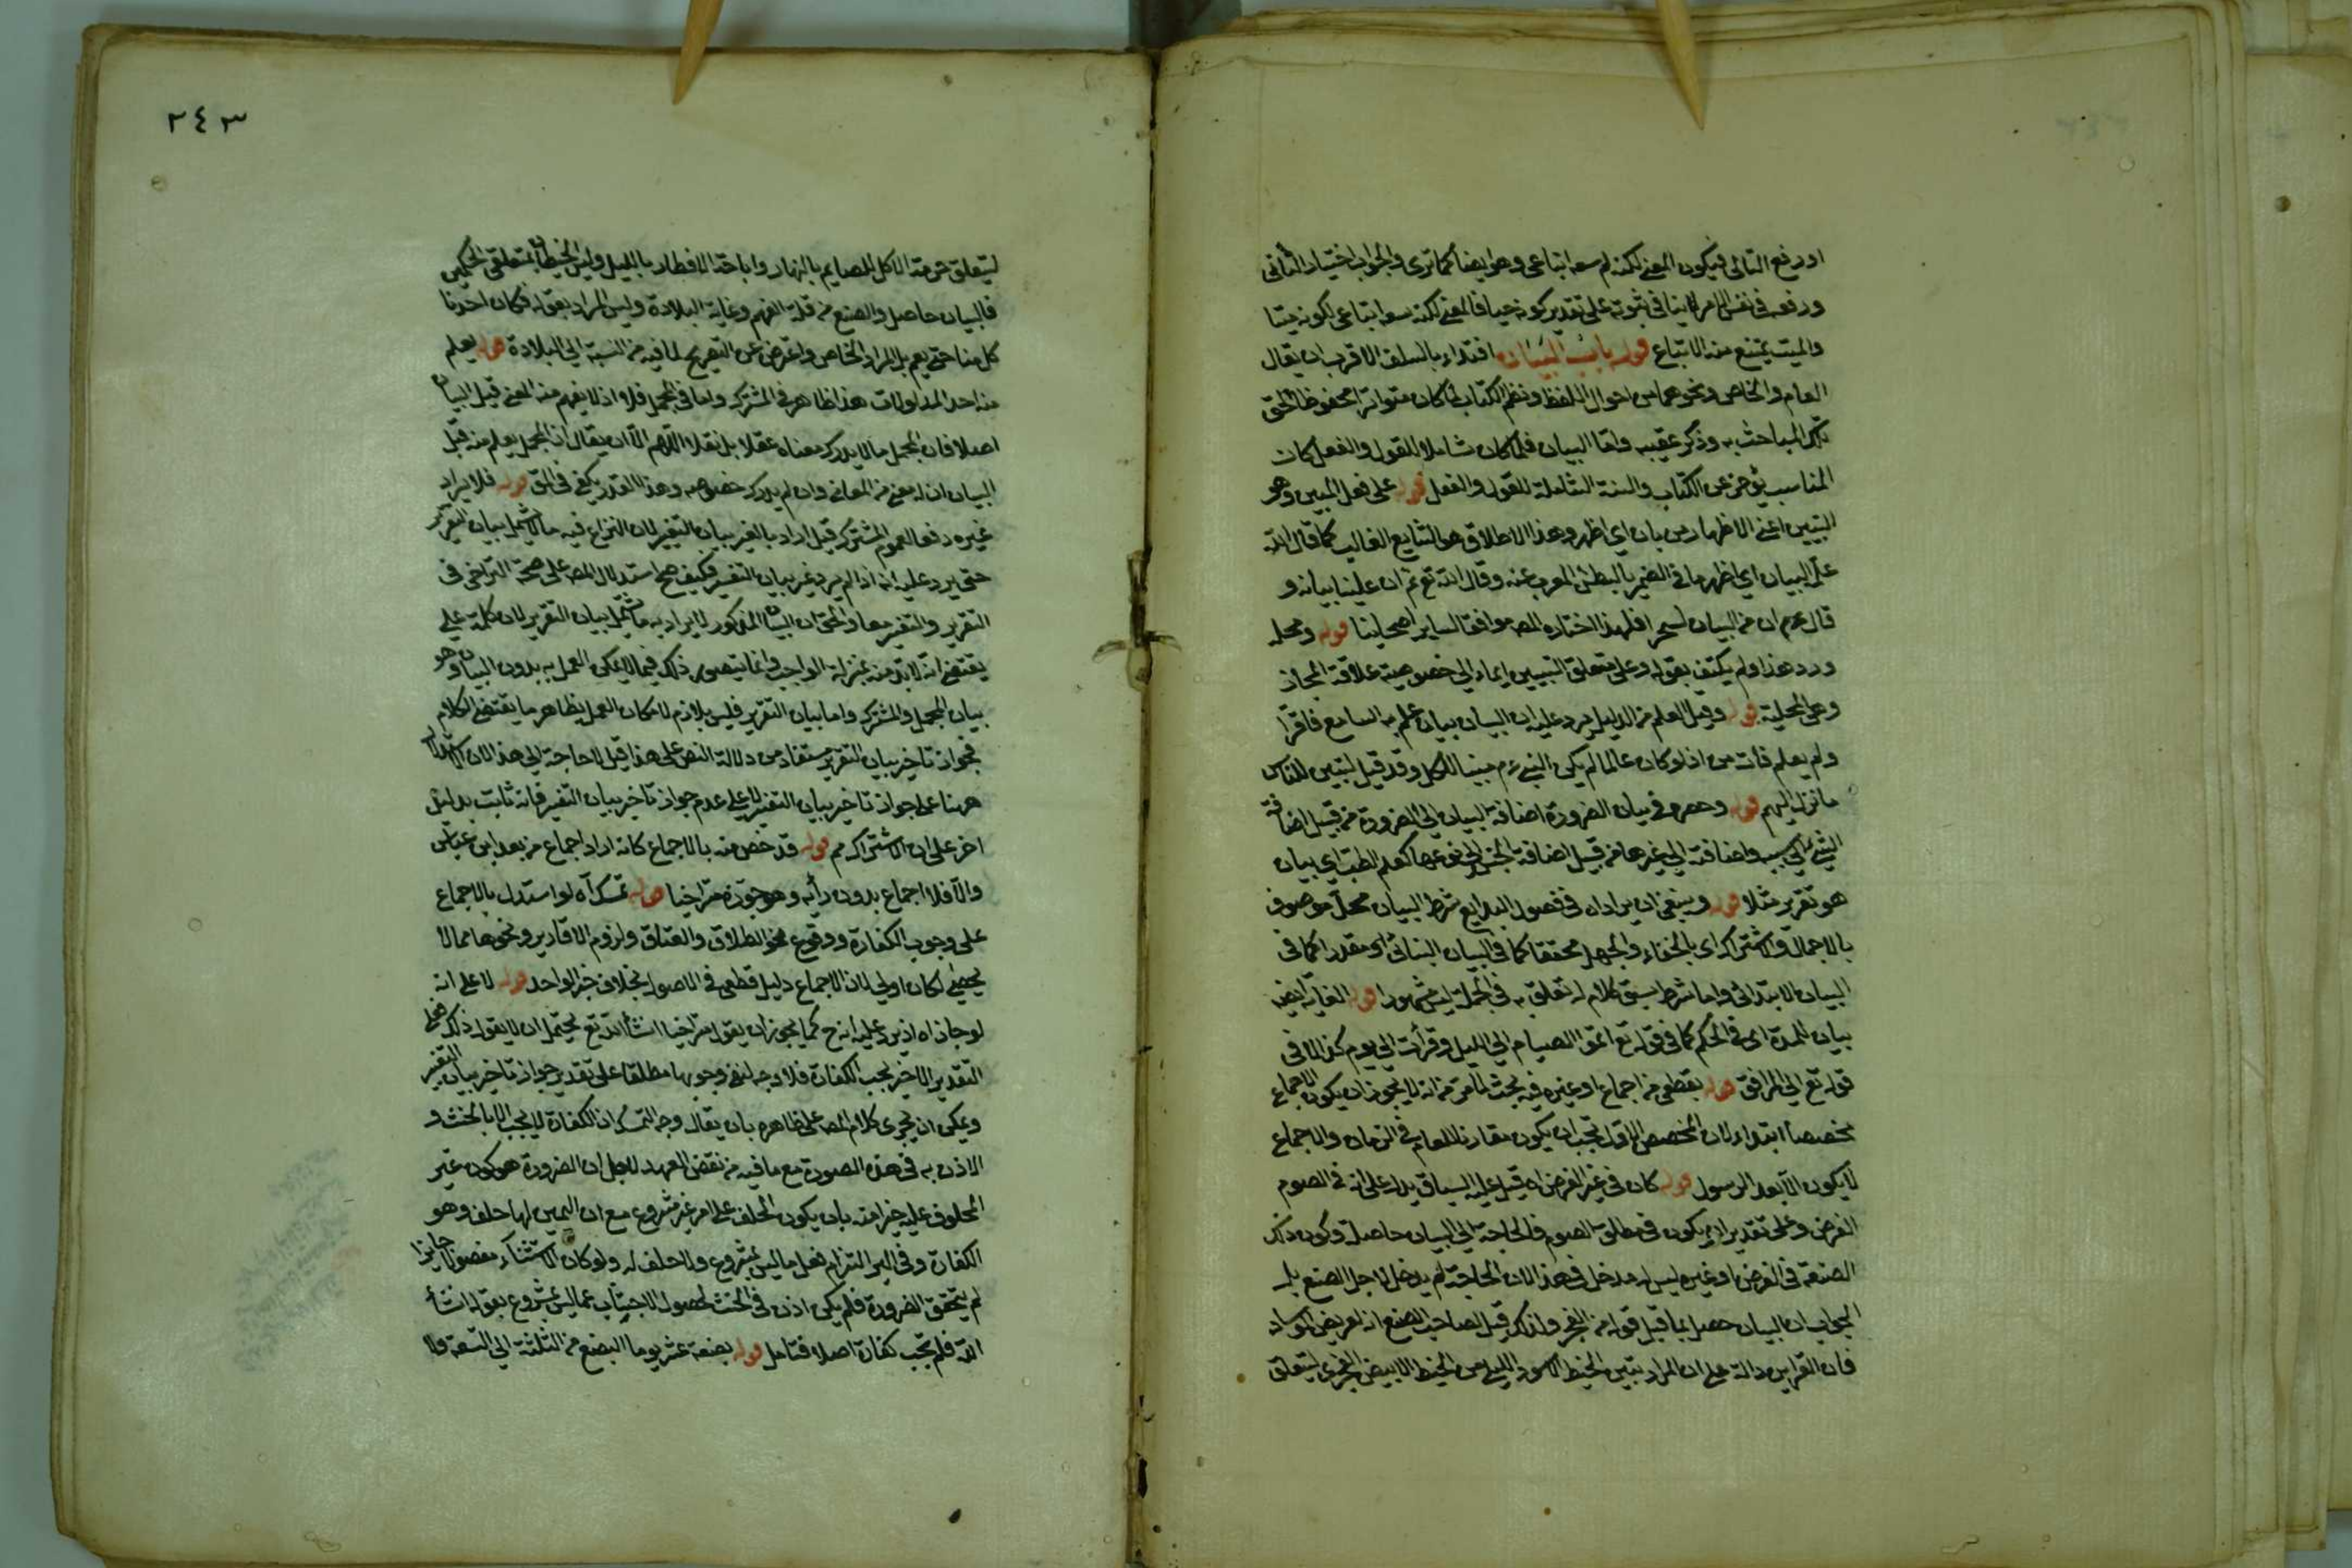 او رفع التالى فيكون المعنى لكنه لم يسعه اتباعى وهو ايضا كما ترى والجواب اختيار الثانى
ورفعه فى نفس الامر لا ينافى ثبوته على تقدير كونه حيا فالمعنى لكنه يسعه اتباعى لكونه ميتا
والميت يمتنع منه الاتباع قوله باب البيان اقتداء بالسلف الاقرب ان يقال
العام والخاص ونحوهما من احوال اللفظ ونظم الكتاب لما كان متواترا محفوظا الحق
تلك المباحث به وذكر عقيبه واما البيان فلما كان شاملا للقول والفعل كان
المناسب يؤخر عن الكتاب والسنة الشاملة للقول والفعل قوله على فعل المبين وهو
التبيين اعنى الاظهار من بان اى اظهر وهذا الاطلاق هو الشايع الغالب كما قال الله
علمه البيان اى اظهر ما فى الضمير بالنطق المعرب عنه وقال الله تع ثم ان علينا بيانه و
قال عم ان من البيان لسحرا فلهذا اختاره المصه موافقا لساير اصحابنا قوله ومحله
ورد هذا ولم يكتف بقوله وعلى متعلق التبيين ايماء الى خصوصية علاقة المجاز
وهى المحلية قوله وقيل العلم من الدليل يرد عليه ان البيان بيان علم به السامع فاقرا
ولم يعلم فات من اذ لو كان عالما لم يكن النبى عم مبينا للكل وقد قيل لتبين للناس
ما نزل اليهم قوله وحصر فى بيان الضرورة اضافة البيان الى الضرورة من قبيل اضافة
الشئ الى سببه واضافته الى غيرها من قبيل اضافة الجنس الى نوعها كعلم الطب اى بيان
هو تقرير مثلا قوله وينبغى ان يراد اه فى فصول البدايع شرط البيان محل موصوف
بالاجمال والاشتراك اى بالخفاء والجهل محققا كما فى البيان البنائى او مقدرا كما فى
البيان الابتدائى واما شرط سبق كلام له تعلق به فى الجملة ليس مشهورا قوله الغاية ايض
بيان للمدة اى فى الحكم كما فى قوله تع اتموا الصيام الى الليل وقرأت الى يوم كذا لا فى
قوله تع الى المرافق قوله بقطعى من اجماع او غيره فيه بحث لما مر من انه لا يجوز ان يكون الاجماع
مخصصا ابتداء لان المخصص الاول يجب ان يكون مقارنا للعام فى الزمان والاجماع
لا يكون الا بعد الرسول قوله كان فى غير الفرض اه قيل عليه السياق يدل على انه فى الصوم
الفرض وعلى تقدير ان يكون فى مطلق الصوم فالحاجة الى البيان حاصلة وكون ذلك
الصنعة فى الفرض او غيره ليس له مدخل فى هذا لان الحاجة لم يدخل لاجل الصنع بل
الجواب ان البيان حصل بما قبل قوله من الفجر ولذلك قيل لصاحب الصنع انه لعريض الوساد
فان القراين دالة على ان المراد تبين الخيط الاسود الليلى من الخيط الابيض الفجرى ليتعلق
٢٤٣
ليتعلق حرمة الاكل للصايم بالنهار واباحة الافطار بالليل وليس الخيطان متعلقى الحكمين
فالبيان حاصل والصنع من قلة الفهم وغاية البلادة وليس المراد بقوله فكان احدنا
كل منا حتى يعم بل المراد الخاص واعترض عن التصريح لما فيه من النسبة الى البلادة قوله يعلم
منه احد المدلولات هذا ظاهر فى المشترك واما فى المجمل فلا اذ لا يفهم منه المعنى قبل البيان
اصلا فان المجمل ما لا يدرك معناه عقلا بل نقلا اللهم الا ان يقال ان المجمل يعلم منه قبل
البيان ان له معنى من المعانى وان لم يدرك خصوصه وهذا القدر يكفى فى المق قوله فلا يراد
غيره دفعا لعموم المشترك قيل اراد بالغير بيان التغيير لان النزاع فيه ما لا يشمل بيان التقرير
حتى يرد عليه انه اذا لم يرد غير بيان التفسير فكيف صح استدلال المصه على صحة التراخى فى
التقرير والتفسير معا والحق ان البيان المذكور لا يراد به ما يشمل بيان التقرير لان كلمة على
يقتضى انه لا بد منه بمنزلة الواجب وانما يتصور ذلك فيما لا يمكن العمل به بدون البيان وهو
بيان المجمل والمشترك واما بيان التقرير فليس بلازم لامكان العمل بظاهر ما يقتضى الكلام
فجواز تاخير بيان التقرير مستفاد من دلالة النص على هذا قيل لا حاجة الى هذا لان الاستدلال
ههنا على جواز تاخير بيان التفسير لا على عدم جواز تاخير بيان التغيير فانه ثابت بدليل
اخر على ان الاشتراك مم قوله قد خص منه بالاجماع كانه اراد اجماع من بعد ابن عباس
والا فلا اجماع بدون رأيه وهو جوزه متراخيا قوله تمسكا اه لو استدل بالاجماع
على وجوب الكفارة ووقوع نحو الطلاق والعتاق ولزوم الاقارير ونحوها مما لا
يحصى لكان اولى لان الاجماع دليل قطعى فى الاصول بخلاف خبر الواحد قوله لا على انه
لو جاز اه اذ يرد عليه انه ح كما يجوز ان يقول متراخيا ان شاء الله تع يحتمل ان لا يقول ذلك فعلى
التقدير الاخير يجب الكفارة فلا وجه لنفى وجوبها مطلقا على تقدير جواز تاخير بيان التغيير
ويمكن ان يجرى كلام المصه على ظاهره بان يقال وجه التمسك ان الكفارة لا يجب الا بالحنث و
الاذن به فى هذه الصورة مع ما فيه من نقض العهد لاجل ان الضرورة هو كون غير
المحلوف عليه خيرا منه بان يكون الحلف على امر غير مشروع مع ان اليمين لها خلف وهو
الكفارة وفى البر التزام فعل ما ليس بمشروع ولا خلف له ولو كان الاستثناء مفصولا جايزا
لم يتحقق الضرورة فلم يكن اذن فى الحنث لحصول الاجتناب عما ليس بمشروع بقوله ان شاء
الله فلم يجب كفارة اصلا فتامل قوله بضعة عشر يوما البضع من الثلثة الى التسعة ولا